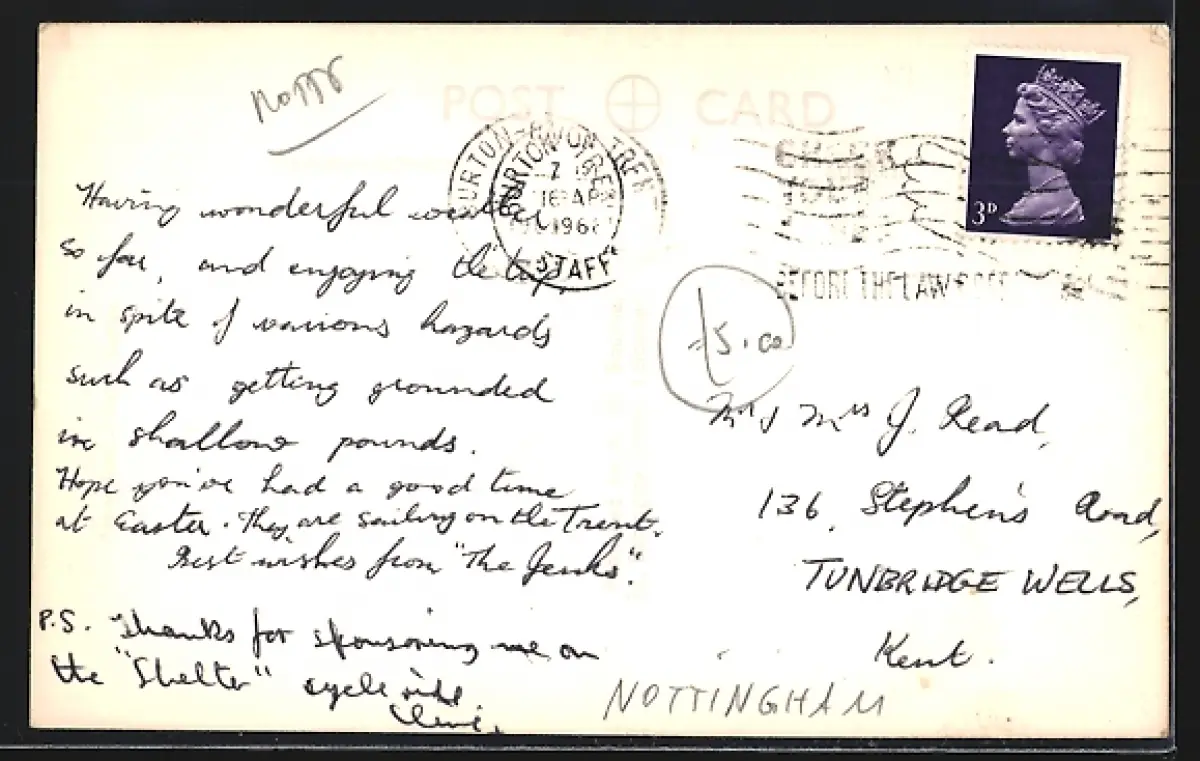 Notts
POST CARD
BURTON-UPON-TRENT
16 AP
196
STAFFS
3D
BEFORE THE LAW
Having wonderful weather
so far, and enjoying the trip,
in spite of various hazards
such as getting grounded
in shallow pounds.
Hope you've had a good time
at Easter. They are sailing on the Trent.
Best wishes from "The Jenks".
P.S. Thanks for sponsoring me on
the "Shelter" cycle ride
Clive.
£5.00
Mr & Mrs J. Read,
136, Stephen's Road,
TUNBRIDGE WELLS,
Kent.
NOTTINGHAM